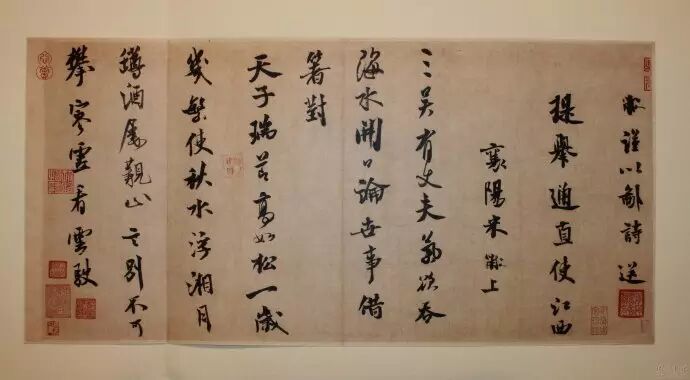 黻謹以鄙詩送
提舉通直使江西
襄陽米黻上
三吳有丈夫氣欲吞
海水開口論世事借
箸對
天子瑞節高如松一歲
幾使秋水浮湘月
罇酒屬觀山言別不可
攀雲看雲駛